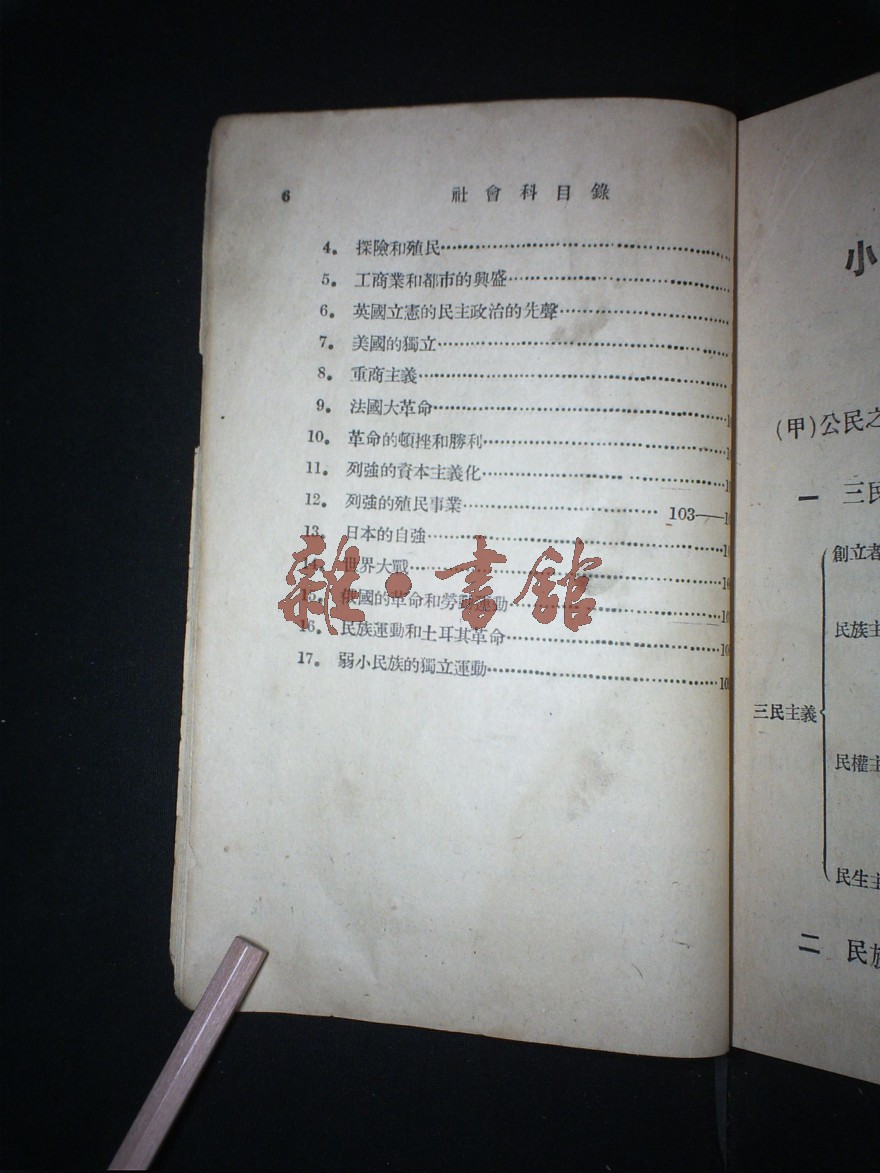 6 社會科目錄
4. 探險和殖民
5. 工商業和都市的興盛
6. 英國立憲的民主政治的先聲
7. 美國的獨立
8. 重商主義
9. 法國大革命
10. 革命的頓挫和勝利
11. 列強的資本主義化
12. 列強的殖民事業 103——
13. 日本的自強
14. 世界大戰
15. 俄國的革命和勞動運動
16. 民族運動和土耳其革命
17. 弱小民族的獨立運動
雜·書館
小
(甲)公民之
一 三民
創立者
民族主
三民主義
民權主
民生主
二 民族